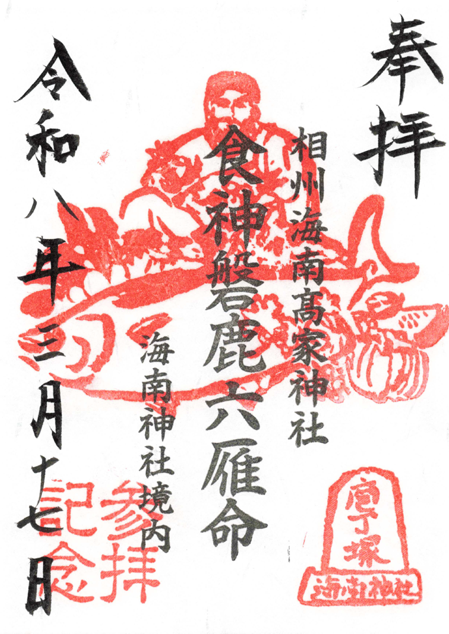 奉拝
相州海南高家神社
食神磐鹿六雁命
海南神社境内
令和八年三月十七日
参拝
記念
庖丁塚
海南神社